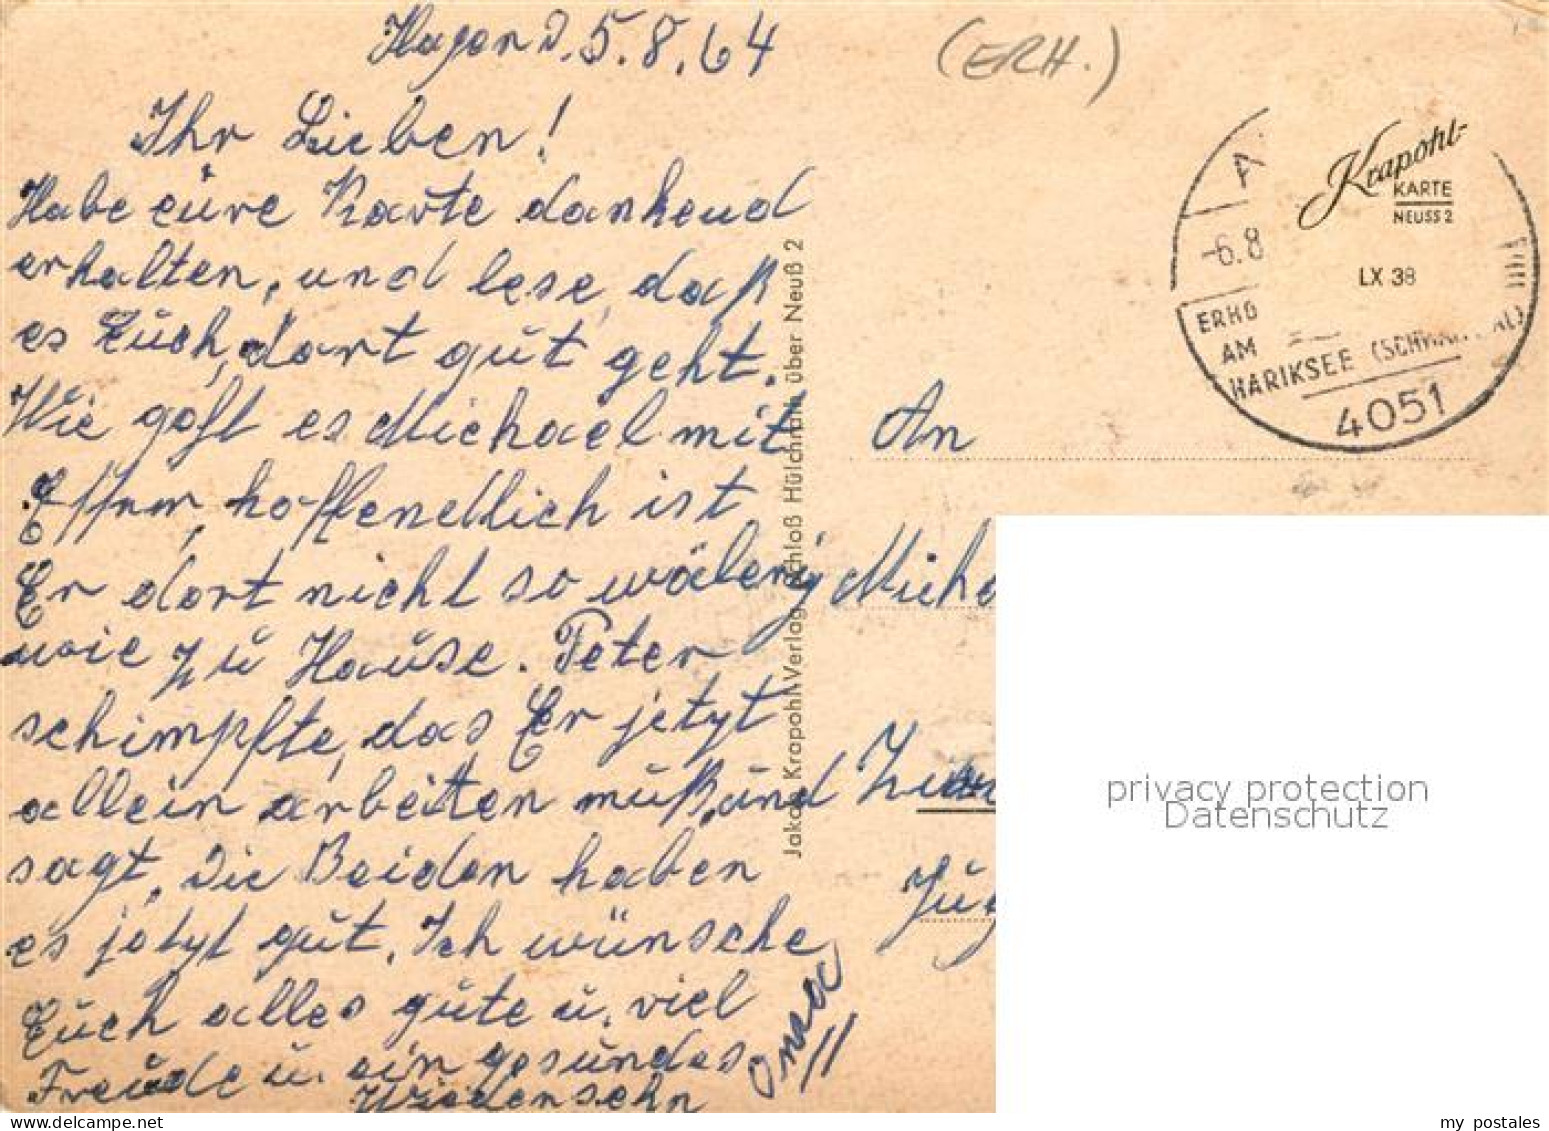 Hagen d. 5.8.64
(ERH.)
Ihr Lieben!
Habe eure Karte dankend
erhalten, und lese, daß
es Euch, dort gut geht.
Wie geht es Michael mit
Essen, hoffendlich ist
Er dort nicht so
wie zu Hause. Peter
schimpfte, das Er jetzt
allein arbeiten muß, und
sagt, Die Beiden haben
es jetzt gut. Ich wünsche
Euch alles gute u. viel
Freude u. ein gesundes
Wiedersehn
Jakob Krapohl-Verlag, Schloß Hülchrath über Neuß 2
Krapohl-
KARTE
NEUSS 2
LX 38
-6.8
ERHO
AM
HARIKSEE (SCHWA AL)
4051
An
Mich
privacy protection
Datenschutz
my postales